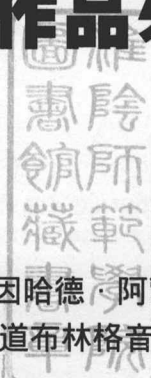 作品
淮陰師範學院
圖書館藏書
因哈德·阿
道布林格音